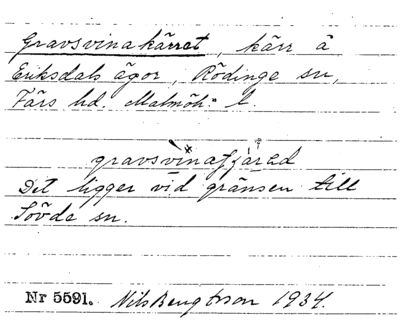 Gravsvinakärret, kärr å
Eriksdals ägor, Rödinge sn,
Färs hd. Malmöh. l.
gravsvinafjäred
Det ligger vid gränsen till
Sövde sn.
Nr 5591. Nils Bengtsson 1934.